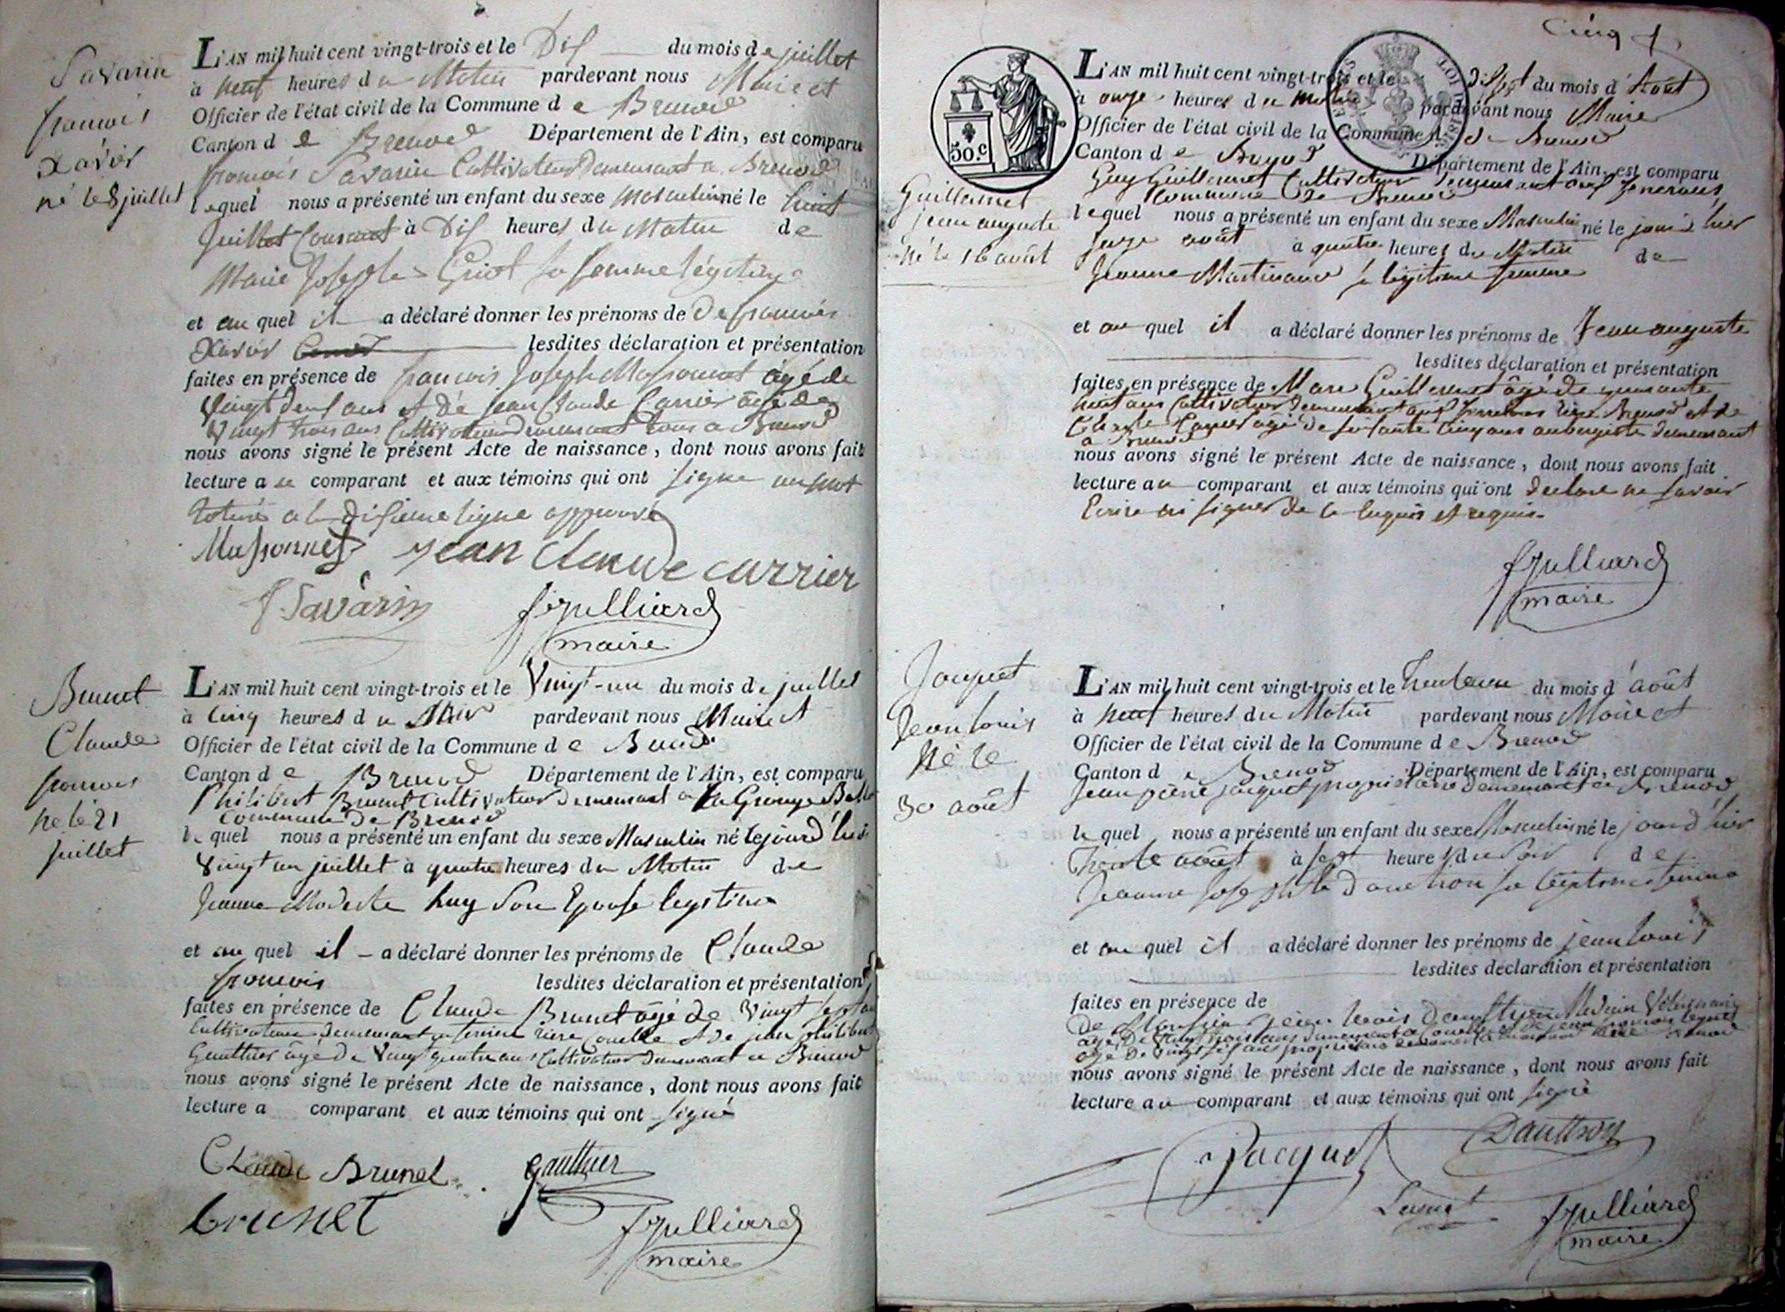 Savarin
francois
Xavier
né le 8 juillet
L'AN mil huit cent vingt-trois et le Dix du mois de juillet
à neuf heures du Matin pardevant nous Maire et
Officier de l'état civil de la Commune de Brenod
Canton de Brenod Département de l'Ain, est comparu
francois Savarin Cultivateur demeurant a Brenod
lequel nous a présenté un enfant du sexe masculin né le huit
Juillet Courant à Dix heures du Matin de
Marie Josephe sa femme légitime
et au quel il a déclaré donner les prénoms de De francois
Xavier lesdites déclaration et présentation
faites en présence de francois Joseph Massonnet âgé de
Vingt deux ans et de jean Claude Carrier âgé de
Vingt trois ans Cultivateur demeurant tous a Brenod
nous avons signé le présent Acte de naissance, dont nous avons fait
lecture a comparant et aux témoins qui ont signe un mot
a la Dixieme ligne approuvé
Massonnet jean claude carrier
f Savarin fjulliard
maire
Brunet
Claude
francois
né le 21
juillet
L'AN mil huit cent vingt-trois et le Vingt-un du mois de juillet
à Cinq heures du Soir pardevant nous Maire et
Officier de l'état civil de la Commune de Brenod
Canton de Brenod Département de l'Ain, est comparu
Philibert Brunet Cultivateur demeurant a la Grange
Commune de Brenod
le quel nous a présenté un enfant du sexe Masculin né le jourd'hui
Vingt un juillet à quatre heures du Matin de
Jeanne Modeste huy Son Epouse legitime
et au quel il a déclaré donner les prénoms de Claude
francois lesdites déclaration et présentation
faites en présence de Claude Brunet âgé de Vingt sept ans
Cultivateur demeurant rière et de jean philibert
Gauthier âgé de Vingt quatre ans Cultivateur demeurant a Brenod
nous avons signé le présent Acte de naissance, dont nous avons fait
lecture a comparant et aux témoins qui ont signé
Claude Brunet gauthier
brunet fjulliard
maire
Cinq
50.c
Guillermet
jean auguste
né le 16 août
L'AN mil huit cent vingt-trois et le dix sept du mois d'Août
à onze heures du matin pardevant nous Maire
Officier de l'état civil de la Commune de Brenod
Canton de Brenod Département de l'Ain, est comparu
Guy Guillermet Cultivateur demeurant aux
Commune de Brenod
lequel nous a présenté un enfant du sexe Masculin né le jour d'hier
seize août à quatre heures du Matin de
Jeanne Martinand sa légitime femme
et au quel il a déclaré donner les prénoms de Jean auguste
lesdites déclaration et présentation
faites en présence de Marc Guillermet âgé de quarante
huit ans Cultivateur demeurant aux rière Brenod et de
Carrier âgé de soixante Cinq ans aubergiste demeurant
a Brenod
nous avons signé le présent Acte de naissance, dont nous avons fait
lecture au comparant et aux témoins qui ont declaré ne savoir
Ecrire ni signer de ce enquis et requis.
fjulliard
maire
Jacquet
Jean louis
né le
30 août
L'AN mil huit cent vingt-trois et le trente un du mois d'août
à neuf heures du Matin pardevant nous Maire et
Officier de l'état civil de la Commune de Brenod
Canton de Brenod Département de l'Ain, est comparu
Jean pierre jacquet propriétaire demeurant a Brenod
le quel nous a présenté un enfant du sexe Masculin né le jour d'hier
Trente août à sept heures du soir de
Jeanne Josephte dauthon sa légitime femme
et au quel il a déclaré donner les prénoms de jean louis
lesdites déclaration et présentation
faites en présence de
jean louis dauthon Medecin Vétérinaire
nous avons signé le présent Acte de naissance, dont nous avons fait
lecture au comparant et aux témoins qui ont signé
Jacquet Dauthon
fjulliard
maire